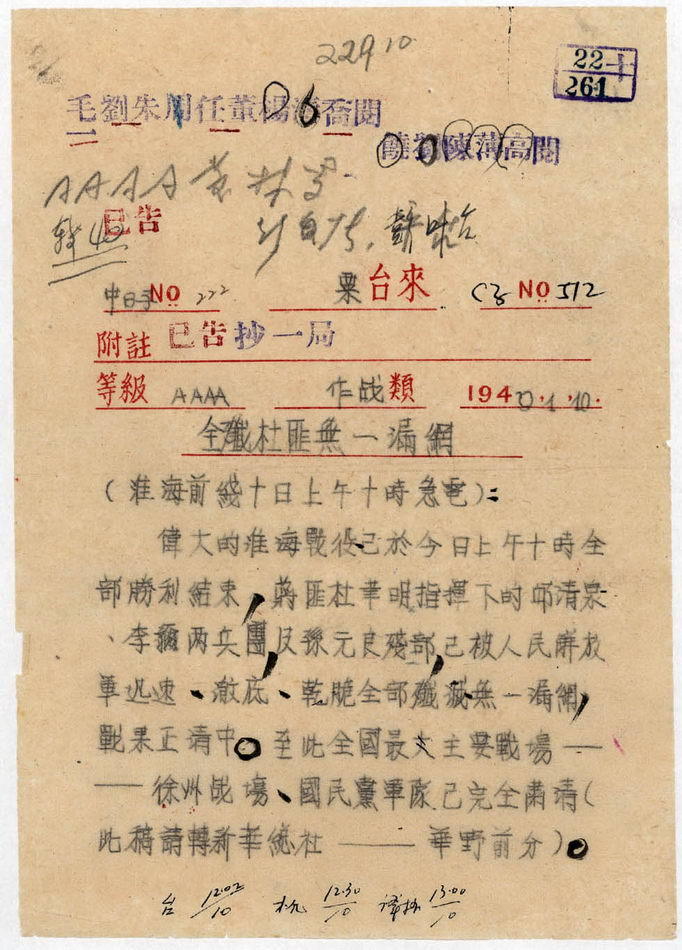 22910
22
261
毛劉朱周任董楊 喬閱
饒 陳薄高閱
AAAA
已告
NO 222 粟台來 NO 512
附註 已告抄一局
等級 AAAA 作战類 1940.1.10.
全殲杜匪無一漏網
(淮海前綫十日上午十時急電):
偉大的淮海戰役已於今日上午十時全
部勝利結束,蔣匪杜聿明指揮下的邱清泉
、李彌两兵團及孫元良殘部,已被人民解放
軍迅速、澈底、乾脆全部殲滅無一漏網,
戰果正清中。至此全國最大主要戰場—
—徐州战場、國民黨軍隊已完全肅清(
此稿請轉新華總社——華野前分)。
台 12.02/10 机 12.30/10 譯抄 13.00/10